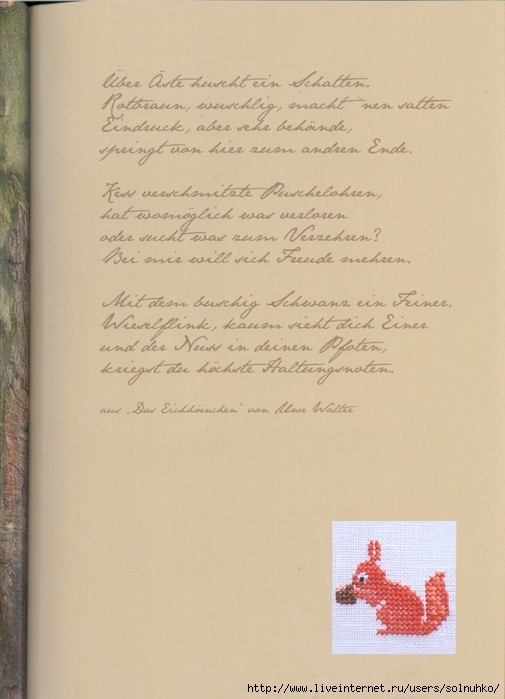 Über Äste huscht ein Schatten.
Rotbraun, wuschlig, macht 'nen satten
Eindruck, aber sehr behände,
springt von hier zum andren Ende.
Kess verschmitzte Puschelohren,
hat womöglich was verloren
oder sucht was zum Verzehren?
Bei mir will sich Freude mehren.
Mit dem buschig Schwanz ein Feiner.
Wieselflink, kaum sieht dich Einer
und der Nuss in deinen Pfoten,
kriegst du höchste Haltungsnoten.
aus „Das Eichhörnchen" von Uwe Walter
http://www.liveinternet.ru/users/solnuhko/